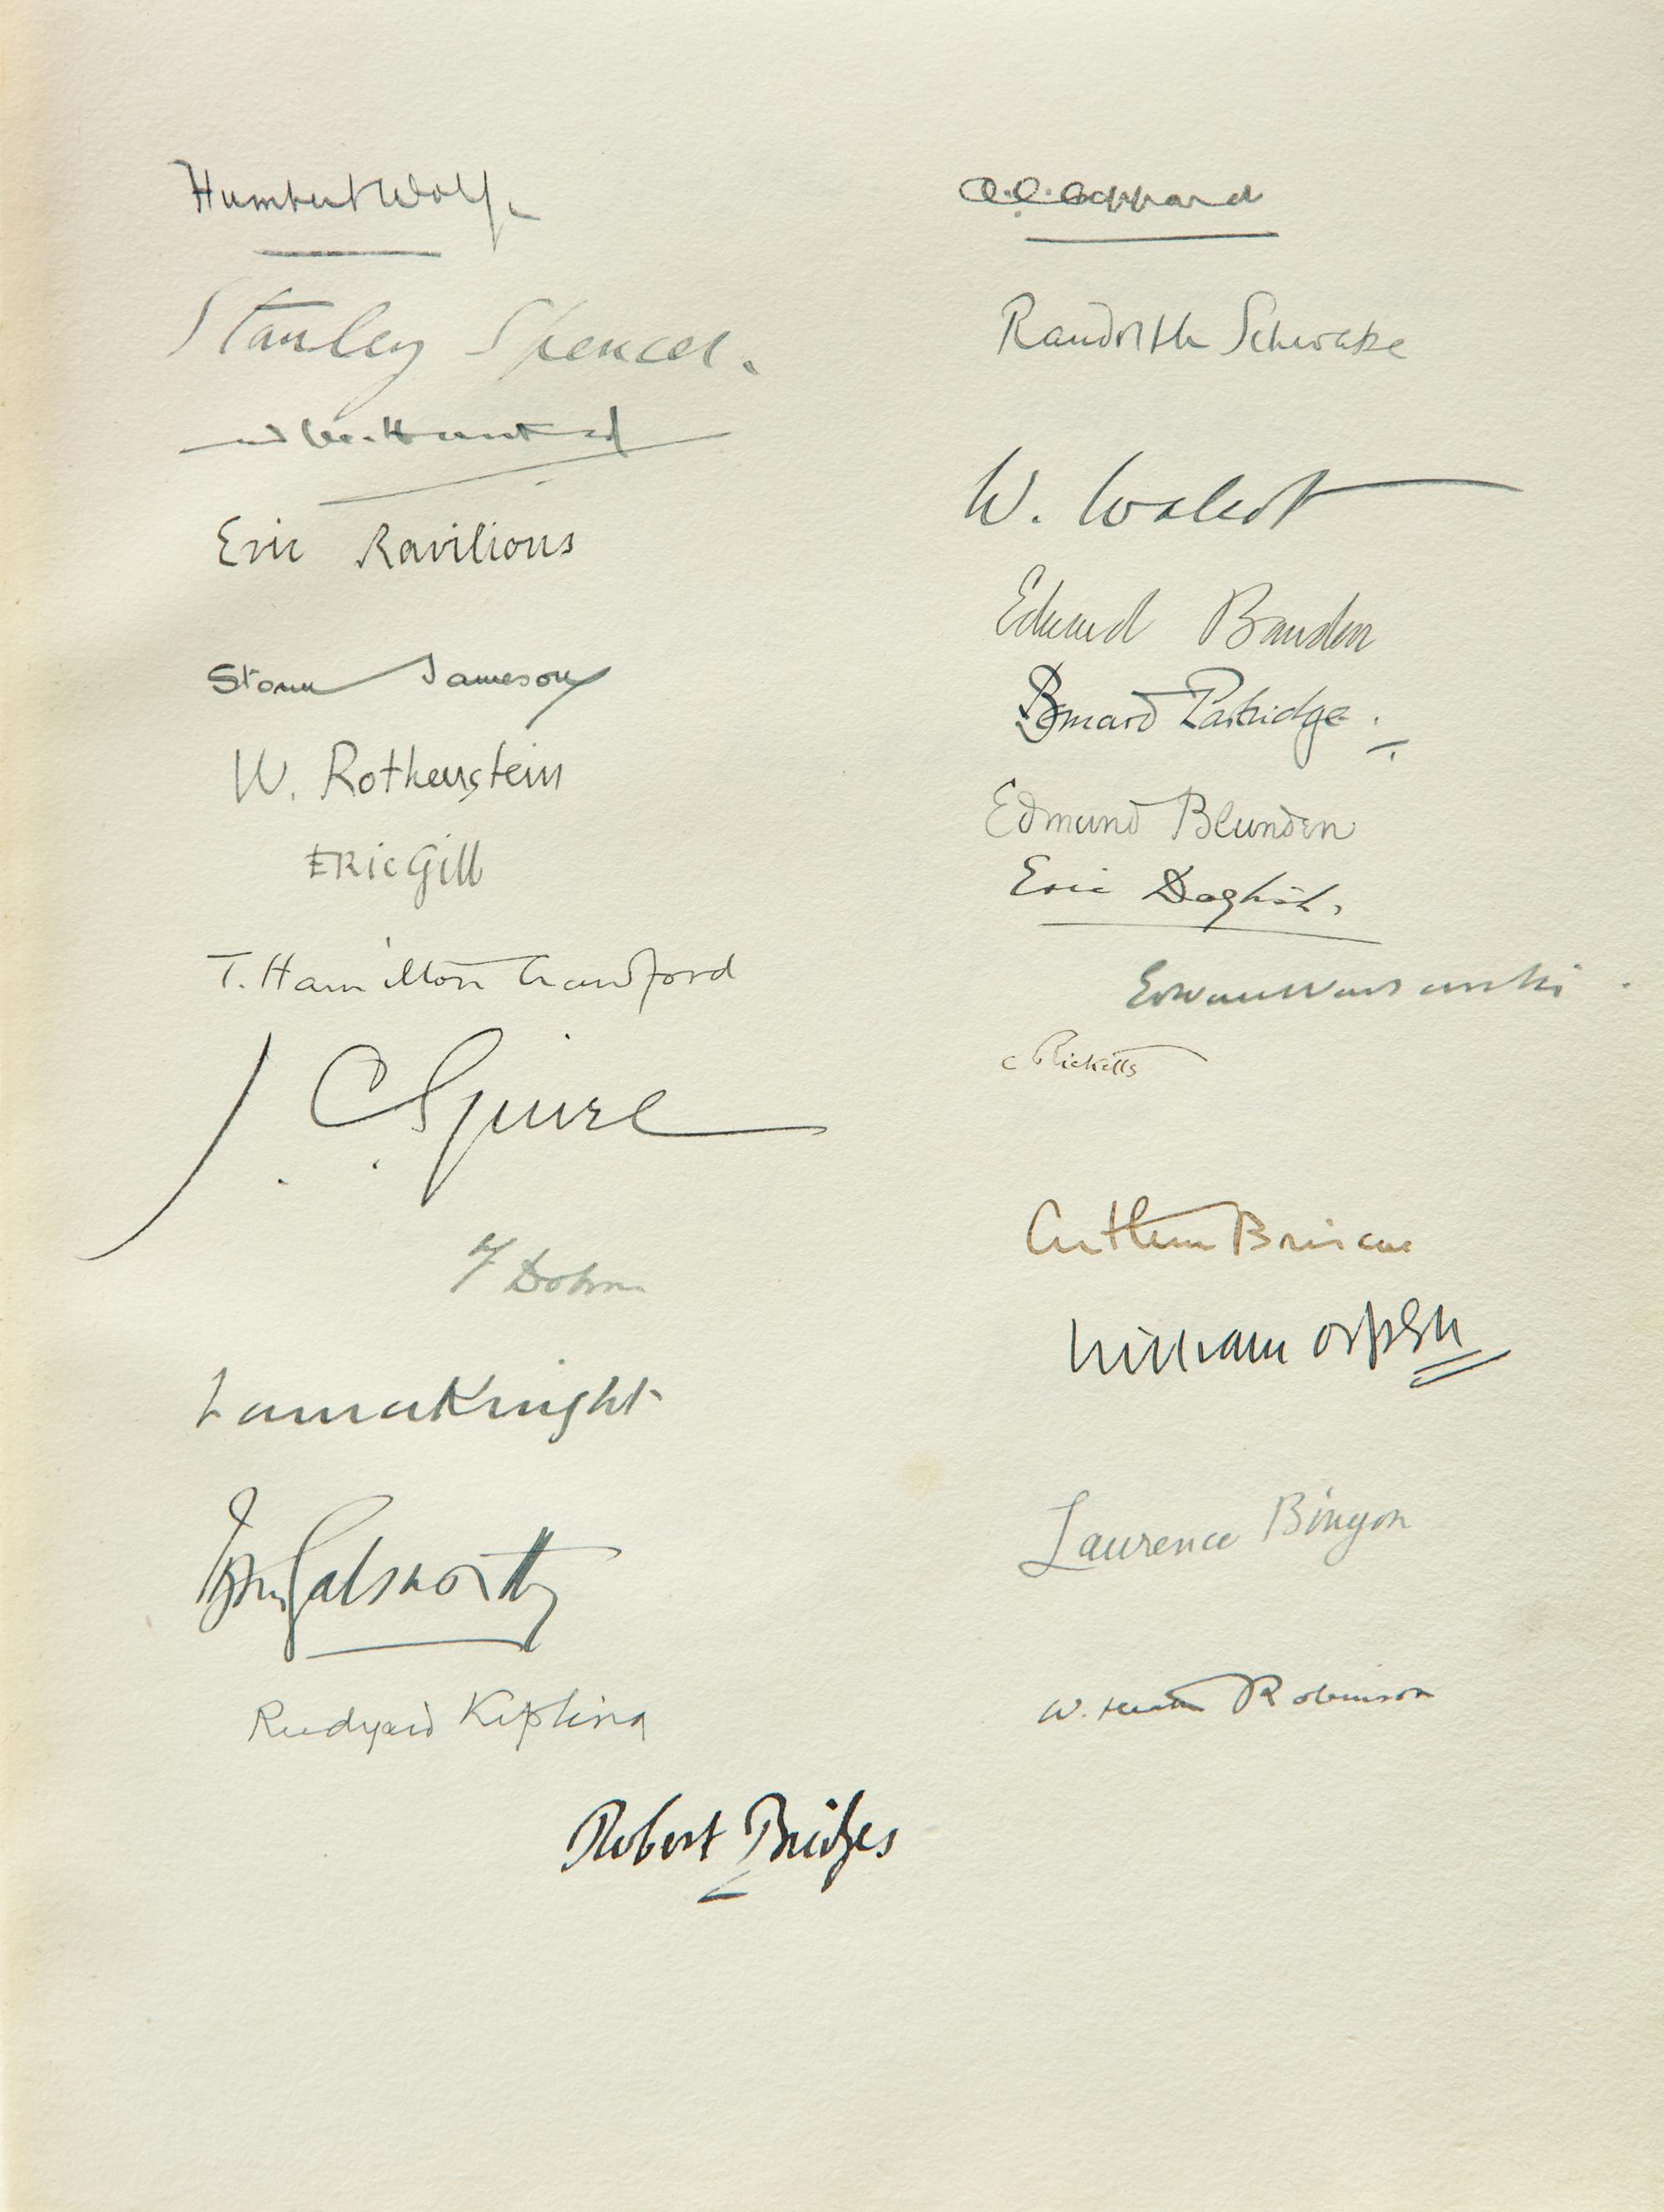 Humbert Wolfe
Stanley Spencer.
Eric Ravilious
Storm Jameson
W. Rothenstein
Eric Gill
T. Hamilton Crawford
J. C. Squire
Laura Knight
John Galsworthy
Rudyard Kipling
A. E. Coppard
Randolph Schwabe
W. Walcot
Edward Bawden
Bernard Partridge.
Edmund Blunden
Eric Daglish.
C Ricketts
Arthur Briscoe
William Orpen
Laurence Binyon
W. Heath Robinson
Robert Bridges